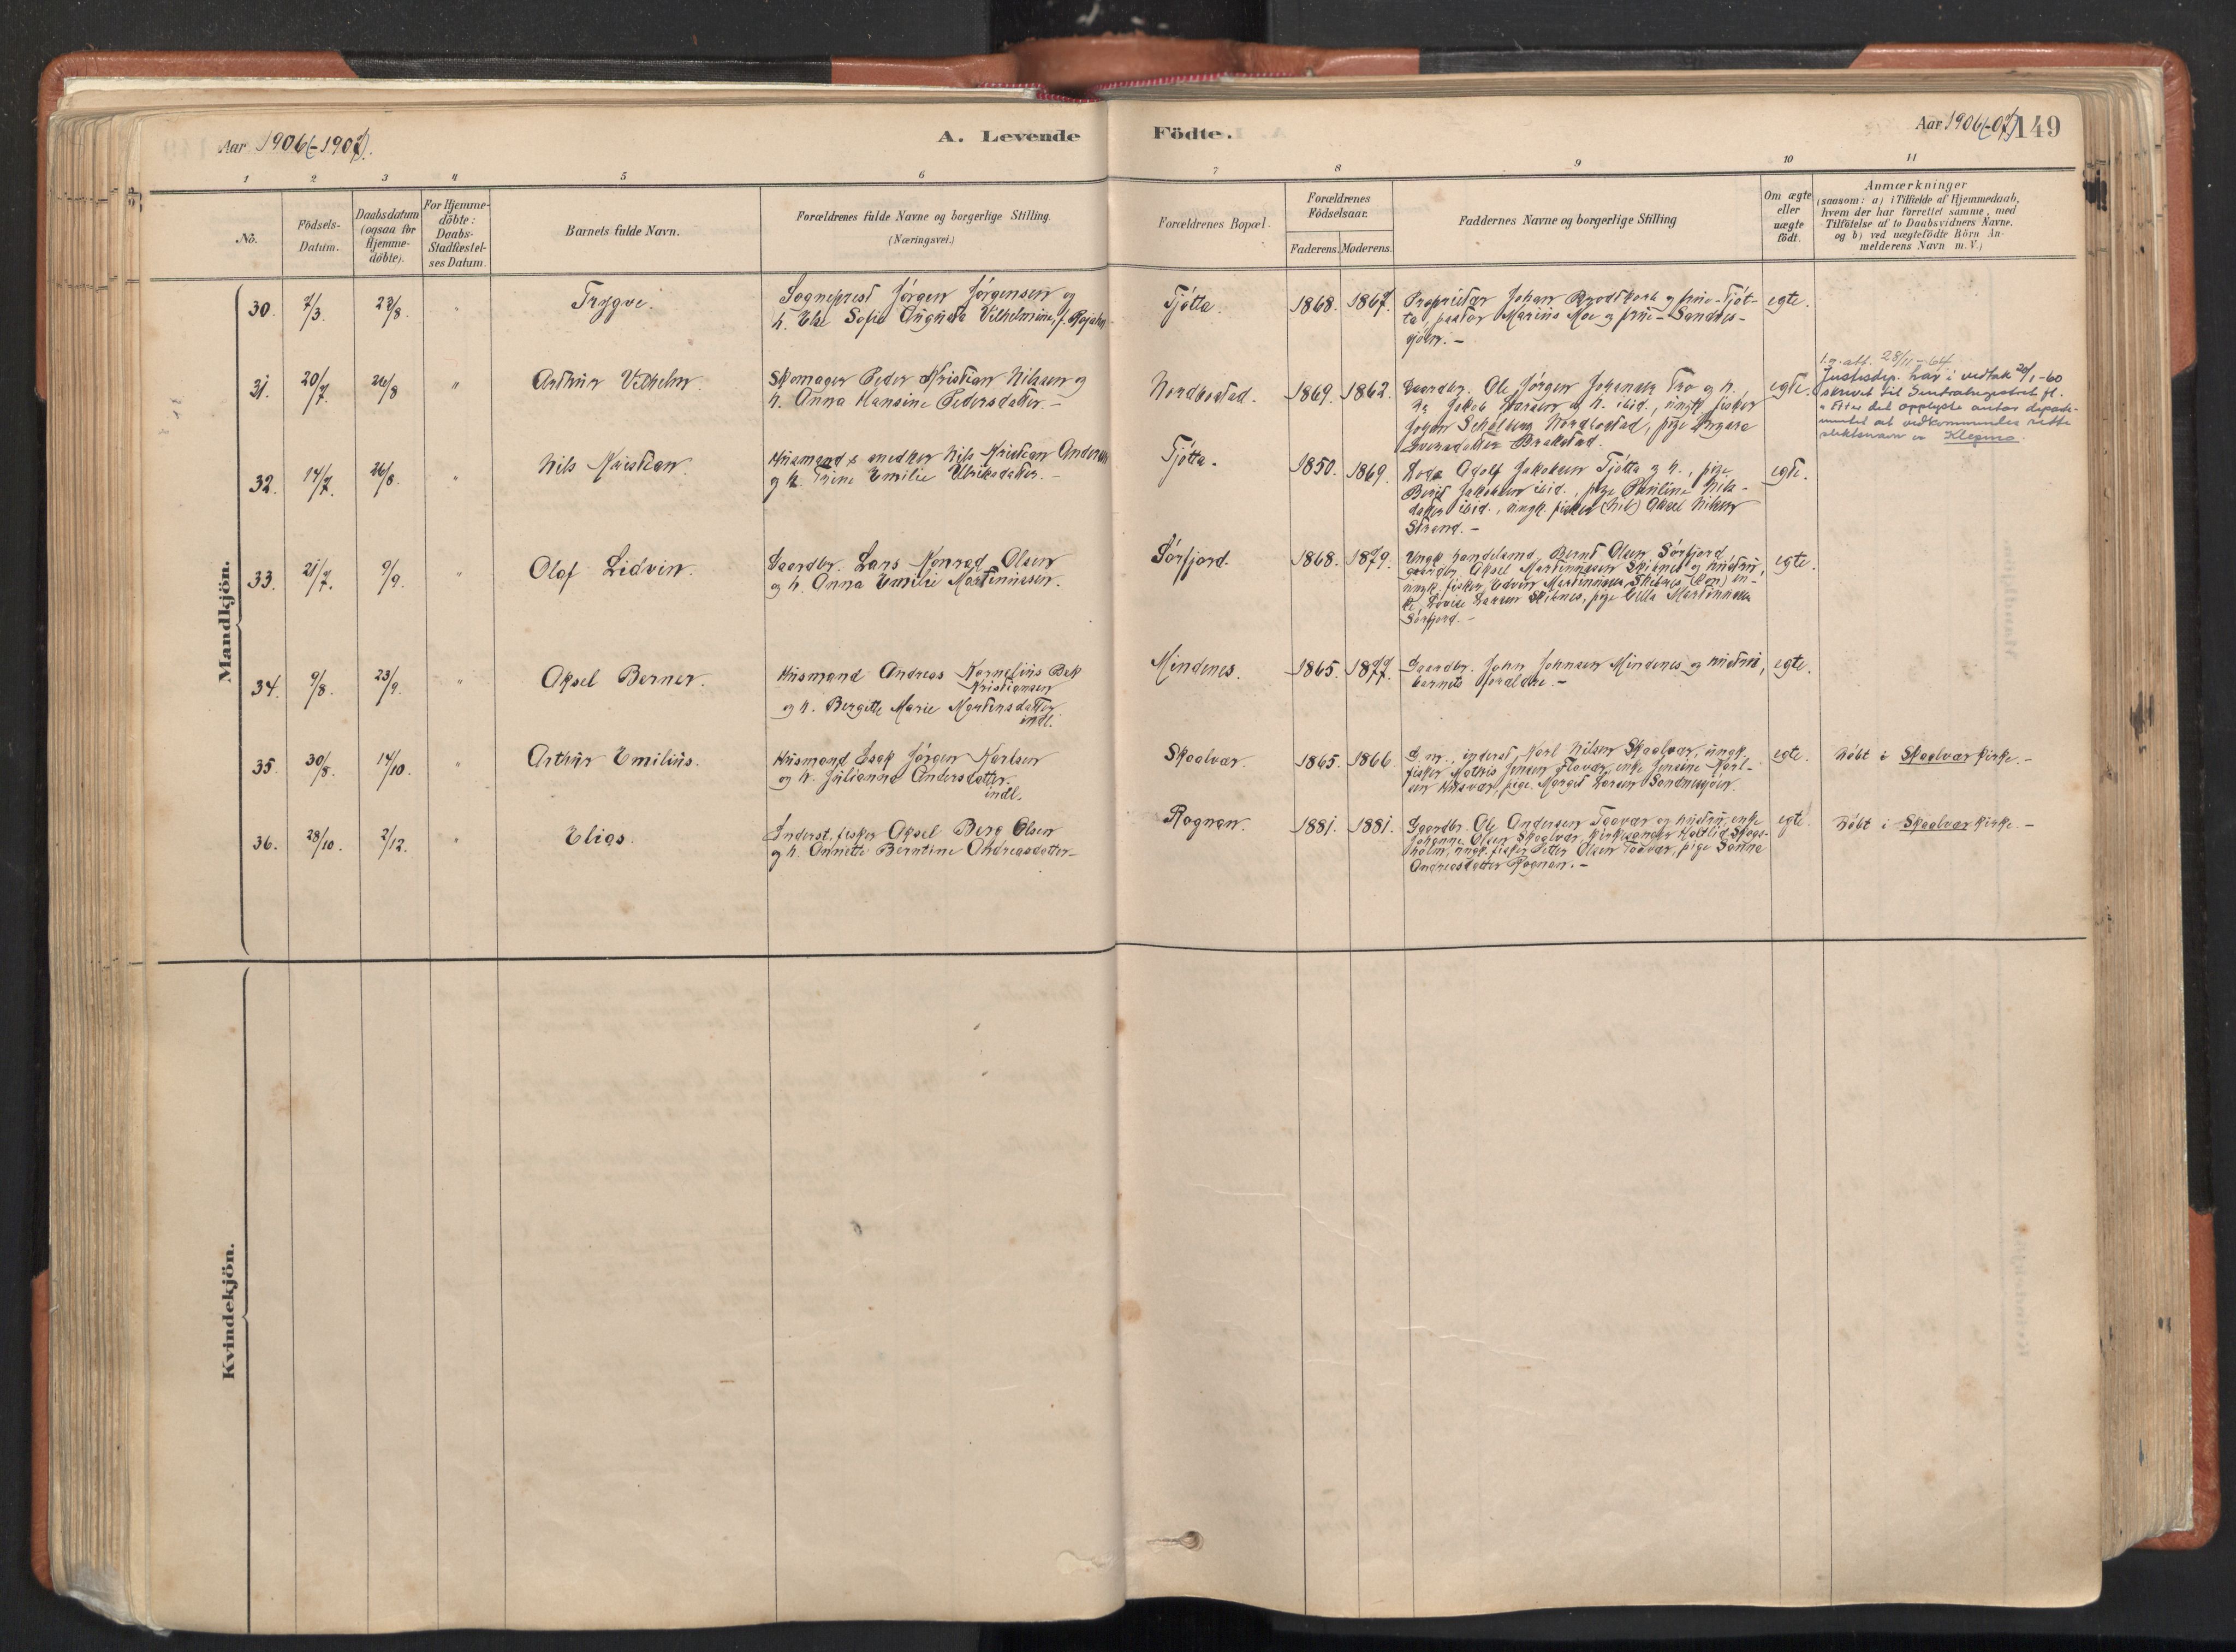 Aar 1906(-1907).
A. Levende
Födte.
Aar 1906(-07)
149
1 2 3 4 5 6 7 8 9 10 11
No.
Födsels-
Datum.
Daabsdatum
(ogsaa for
Hjemme-
döbte).
For Hjemme-
döbte:
Daabs-
Stadfæstel-
ses Datum.
Barnets fulde Navn.
Forældrenes fulde Navne og borgerlige Stilling.
(Næringsvei.)
Forældrenes Bopæl.
Forældrenes
Födselsaar.
Faderens. Moderens.
Faddernes Navne og borgerlige Stilling
Om ægte
eller
uægte
födt.
Anmærkninger
(saasom: a) i Tilfælde af Hjemmedaab,
hvem der har forrettet samme, med
Tilföielse af to Daabsvidners Navne.
og b) ved uægtefödte Börn An-
melderens Navn m. V.)
Mandkjön.
30. 7/3. 23/8. " Trygve.
Sogneprest Jørgen Jørgensen og
h. Else Sofie Augusta Vilhelmine, f. Rojahn
Tjøtta. 1868. 1867.
Proprietær Johan Brodtkorb og frue - Tjøt-
ta, pastor Marius Moe og frue - Sandnes-
sjøen. -
egte.
31. 20/7. 26/8 " Arthur Vilhelm.
Skomager Peder Kristian Nilsen og
h. Anna Hansine Pedersdatter. -
Nordbostad. 1869. 1862.
Gaardbr. Ole Jørgen Johansen Tro og h.,
Jakob h. ibid., ungk. fisker
Johan Nordbostad, pige
Brækstad.
egte.
28/11 - 64
Justisdep. har i vedtak 20/1 - 60
skrevet til Sentralregistret fl.
" Etter det opplyste antar departe-
mentet at vedkommendes rette
slektsnavn er Klegmo.
32. 14/7. 26/8. " Nils Kristian.
Husmand & snedker Nils Kristian Andersen
og h. Trine Emilie Ulriksdatter. -
Tjøtta. 1850. 1869.
Adolf Jakobsen Tjøtta og h., pige
Berit Jakobsen ibid., pige Pauline Nils-
datter ibid., ungk. fisker (Nils) Aksel Nilsen
Strand. -
egte.
33. 21/7. 9/9. " Olaf Lidvin.
Gaardbr. Lars Konrad Olsen
og h. Anna Emilie Martinussen.
Sørfjord. 1868. 1879.
Ungk. handelsmd. Bernt Olsen Sørfjord,
gaardbr. Aksel Martinussen Skibnes og hustru,
ungk. fisker Edvin Martinussen Skibnes, en-
ke Lovise Larsen Skibnes, pige Ella Martinussen
Sørfjord. -
egte.
34. 9/8. 23/9. " Aksel Berner.
Husmand Andreas Kornelius Bek
Kristiansen
og h. Bergitte Marie Mortensdatter
indl.
Mindenes. 1865. 1877.
Gaardbr. John Johnsen Mindenes og hustru,
barnets forældre. -
egte.
35. 30/8. 14/10. " Arthur Emilius.
Husmand Isak Jørgen Karlsen
og h. Julianna Andersdatter.
indl.
Skaalvær. 1865. 1866.
G. m., inderst, Karl Nilsen Skaalvær, ungk.
fisker Mathis Jensen Flovær, enke Jensine Karl-
sen Husvær, pige Margit Larsen Sandnessjøen.
egte.
Døbt i Skaalvær kirke. -
36. 28/10. 2/12. " Elias.
Inderst, fisker Aksel Berg Olsen
og h. Annette Berntine Andreasdatter -
Rognan. 1881. 1881.
Gaardbr. Ole Andersen Taavær og hustru, enke
Johanne Olsen Skaalvær, kirkesanger Holtlid Skogs-
holm, ungk. fisker Petter Olsen Taavær, pige Sanna
Andreasdatter Rognan. -
egte.
Døbt i Skaalvær kirke. -
Kvindekjön.